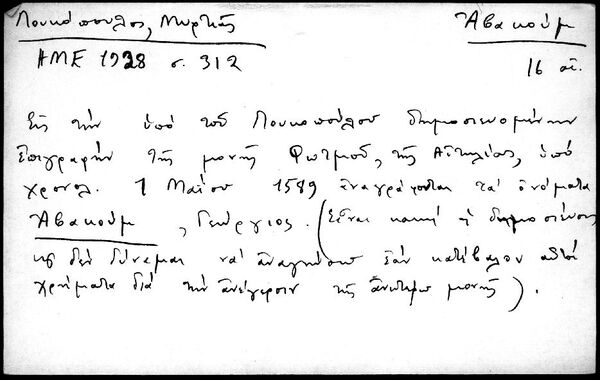 Λουκόπουλος, Μυρτής Ἀβακούμ
ΗΜΕ 1928 σ. 312 16 αἰ.
Εἰς τὴν ὑπὸ τοῦ Λουκοπούλου δημοσιευομένην
ἐπιγραφὴν τῆς μονῆς Φωτμοῦ, τῆς Αἰτωλίας, ὑπὸ
χρονολ. 1 Μαΐου 1589 ἀναγράφονται τὰ ὀνόματα
Ἀβακούμ, Γεώργιος. (Εἶναι κακὴ ἡ δημοσίευσις
κ δὲν δύναμαι νὰ ἀναγνώσω ἐὰν κατέβαλον αὐτοὶ
χρήματα διὰ τὴν ἀνέγερσιν τῆς ἀνωτέρω μονῆς).